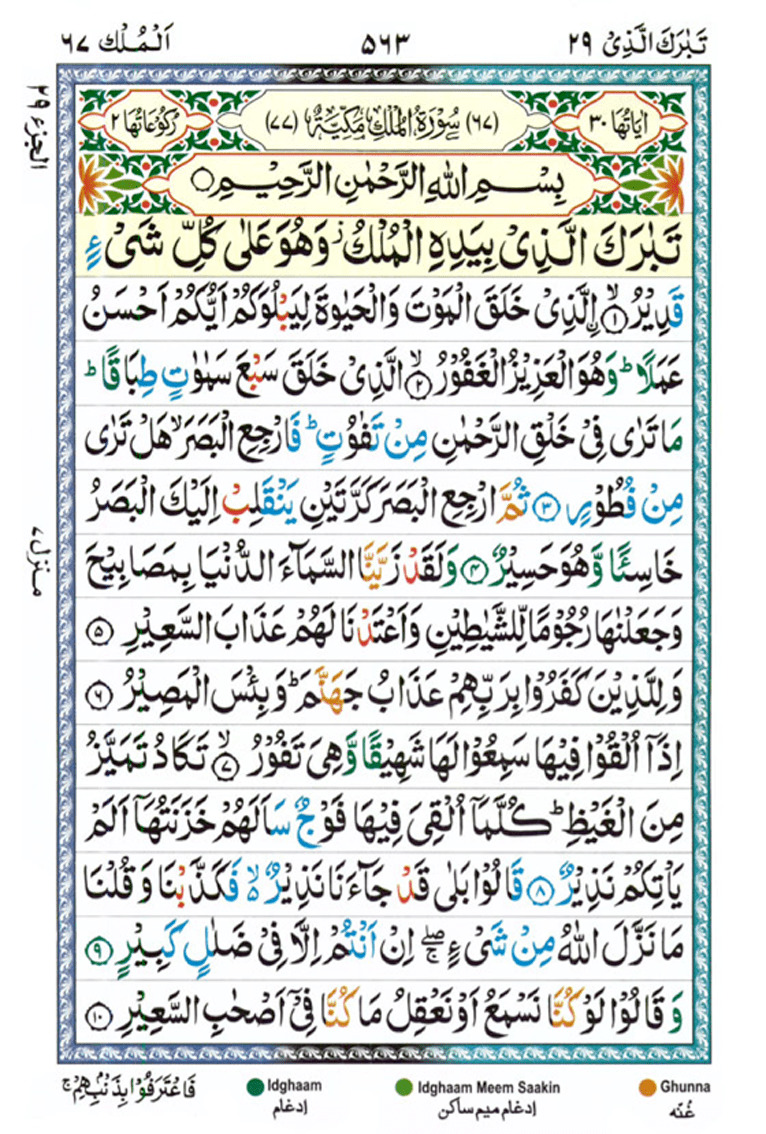 تَبٰرَكَ الَّذِیْ ٢٩ ٥٦٣ اَلْمُلْك ٦٧
اٰیَاتُهَا ٣٠ (٦٧) سُوْرَةُ الْمُلْكِ مَكِّیَّةٌ (٧٧) رُكُوْعَاتُهَا ٢
الجزء ٢٩
بِسْمِ اللهِ الرَّحْمٰنِ الرَّحِیْمِ
تَبٰرَكَ الَّذِیْ بِیَدِهِ الْمُلْكُ ز وَهُوَ عَلٰی كُلِّ شَیْءٍ
قَدِیْرُ ۙ﴿١﴾ اِۨلَّذِیْ خَلَقَ الْمَوْتَ وَالْحَیٰوةَ لِیَبْلُوَكُمْ اَیُّكُمْ اَحْسَنُ
عَمَلًا ؕ وَهُوَ الْعَزِیْزُ الْغَفُوْرُ ۙ﴿٢﴾ الَّذِیْ خَلَقَ سَبْعَ سَمٰوٰتٍ طِبَاقًا ؕ
مَا تَرٰی فِیْ خَلْقِ الرَّحْمٰنِ مِنْ تَفٰوُتٍ ؕ فَارْجِعِ الْبَصَرَ ۙ هَلْ تَرٰی
مِنْ فُطُوْرٍ ﴿٣﴾ ثُمَّ ارْجِعِ الْبَصَرَ كَرَّتَیْنِ یَنْقَلِبْ اِلَیْكَ الْبَصَرُ
خَاسِئًا وَّ هُوَ حَسِیْرٌ ﴿٤﴾ وَلَقَدْ زَیَّنَّا السَّمَآءَ الدُّنْیَا بِمَصَابِیْحَ
وَجَعَلْنٰهَا رُجُوْمًا لِّلشَّیٰطِیْنِ وَاَعْتَدْنَا لَهُمْ عَذَابَ السَّعِیْرِ ﴿٥﴾
منزل ٧
وَلِلَّذِیْنَ كَفَرُوْا بِرَبِّهِمْ عَذَابُ جَهَنَّمَ ؕ وَبِئْسَ الْمَصِیْرُ ﴿٦﴾
اِذَاۤ اُلْقُوْا فِیْهَا سَمِعُوْا لَهَا شَهِیْقًا وَّ هِیَ تَفُوْرُ ۙ﴿٧﴾ تَكَادُ تَمَیَّزُ
مِنَ الْغَیْظِ ؕ كُلَّمَاۤ اُلْقِیَ فِیْهَا فَوْجٌ سَاَلَهُمْ خَزَنَتُهَاۤ اَلَمْ
یَاْتِكُمْ نَذِیْرٌ ﴿٨﴾ قَالُوْا بَلٰی قَدْ جَآءَنَا نَذِیْرٌ ۙ۬ فَكَذَّبْنَا وَقُلْنَا
مَا نَزَّلَ اللهُ مِنْ شَیْءٍ ۖۚ اِنْ اَنْتُمْ اِلَّا فِیْ ضَلٰلٍ كَبِیْرٍ ﴿٩﴾
وَقَالُوْا لَوْ كُنَّا نَسْمَعُ اَوْ نَعْقِلُ مَا كُنَّا فِیْۤ اَصْحٰبِ السَّعِیْرِ ﴿١٠﴾
فَاعْتَرَفُوْا بِذَنْۢبِهِمْ ۚ
Idghaam
ادغام
Idghaam Meem Saakin
ادغام میم ساکن
Ghunna
غُنّه